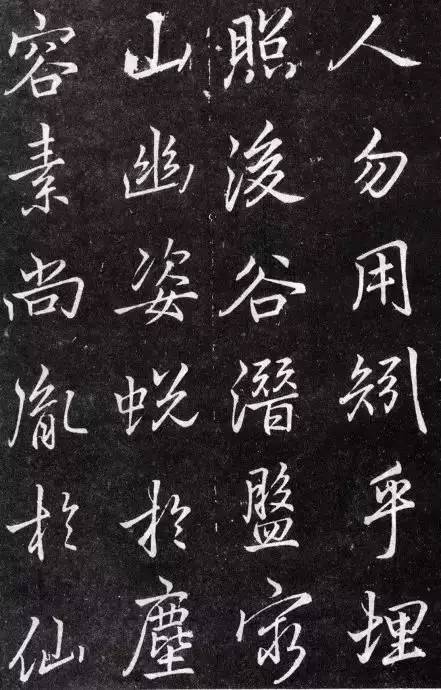 人勿用矧乎埋
照浚谷潛盤
山幽姿蛻於塵
容素尚胤於仙